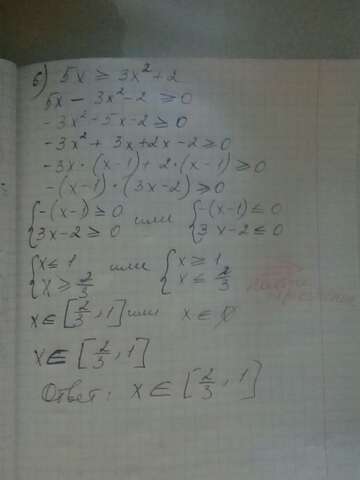 б) 5x ≥ 3x²+2
5x - 3x²-2 ≥0
-3x²-5x-2 ≥0
-3x²+ 3x+2x-2≥0
-3x·(x-1)+2·(x-1)≥0
-(x-1)·(3x-2)≥0
{-(x-1)≥0 или {-(x-1)≤0
3x-2≥0 3x-2≤0
{x≤1 или {x≥1
x≥2/3 x≤2/3
x∈[2/3,1] или x∈∅
x∈[2/3,1]
Ответ: x∈[2/3,1]